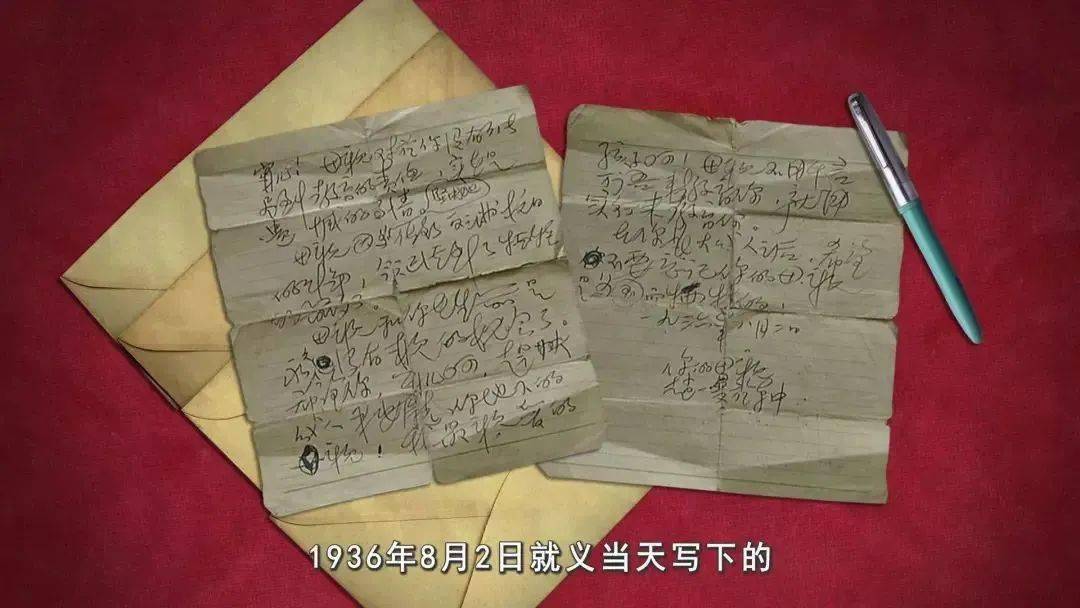 宁儿！母亲对于你没有能尽
到教育的责任，实在是
遗憾的事情。
坚决地
母亲因为做了反满抗日
的斗争，今天已经到了牺牲
的前夕了。
母亲和你在生前是
永久没有再见的机会了。
希望你，宁儿啊！赶快
成人，来安慰你地下的
母亲！我最亲爱的
孩子啊！母亲不用千言
万语来教育你，就用
实行来教育你。
在你长大成人之后，希望
不要忘记你的母亲
是为国而牺牲的！
一九三六年八月二日
你的母亲
赵一曼于车中。
1936年8月2日就义当天写下的